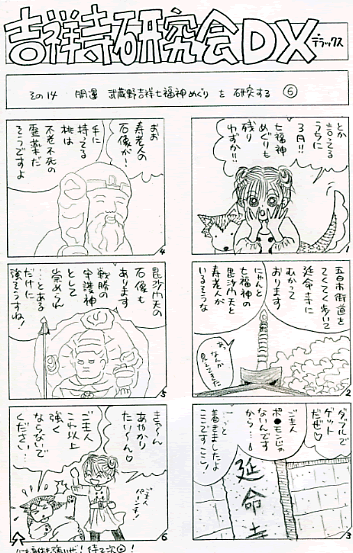 吉祥寺研究会DX
デラックス
その14 開運 武蔵野吉祥七福神めぐり を 研究する ⑥
とか
言ってる
うちに
3月!!
七福神
めぐりも
残り
わずか!!
五日市街道を
てくてく歩いて
延命寺に
むかって
おります
にゃんと
七福神の
毘沙門天と
寿老人が
いるそうな
あ、なんか
見えてきた
2
ダブルで
ゲット
だぜ♡
ご主人
ポ●モンじゃ
ないんです
から…
…っと
着きましたよ
ここですここ!
延命寺
3
おお
寿老人の
石像が!
手に
持ってる
桃は
不老不死の
霊薬だ
そうですよ
4
毘沙門天の
石像も
あります
戦勝の
守護神
として
崇められ
…とある
だけに
強そうすね!
5
きゃ〜ん
あやかり
たい〜ん♡
ご主人
これ以上
強く
ならないで
くださいよ
6